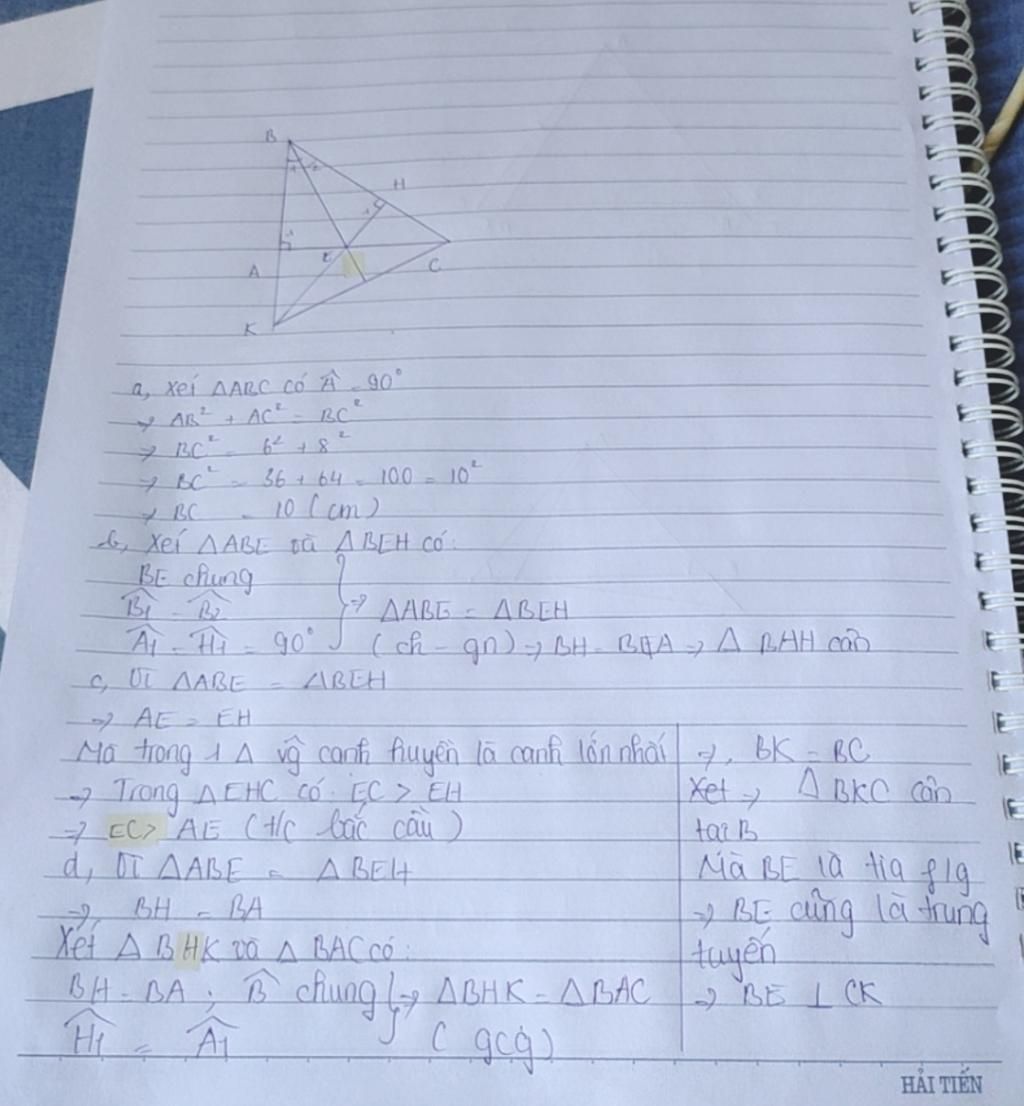 B
1 2
H
1
1
E
A
C
K
a, Xét ΔABC có Â = 90°
→ AB² + AC² = BC²
→ BC² = 6² + 8²
→ BC² = 36 + 64 = 100 = 10²
→ BC = 10 (cm)
b, Xét ΔABE và ΔBEH có:
BE chung
B̂1 = B̂2 } → ΔABE = ΔBEH
Â1 = Ĥ1 = 90° (ch - gn) → BH = BA → Δ BAH cân
c, Vì ΔABE = ΔBEH
→ AE = EH
Mà trong 1 Δ vg cạnh huyền là cạnh lớn nhất
→ Trong ΔEHC có EC > EH
→ EC > AE (t/c bắc cầu)
d, Vì ΔABE = ΔBEH
→ BH = BA
Xét ΔBHK và ΔBAC có:
BH = BA ; B̂ chung } → ΔBHK = ΔBAC
Ĥ1 = Â1 (gcg)
→ BK = BC
Xét → ΔBKC cân
tại B
Mà BE là tia f/g
→ BE cũng là trung
tuyến
→ BE ⊥ CK
HẢI TIẾN